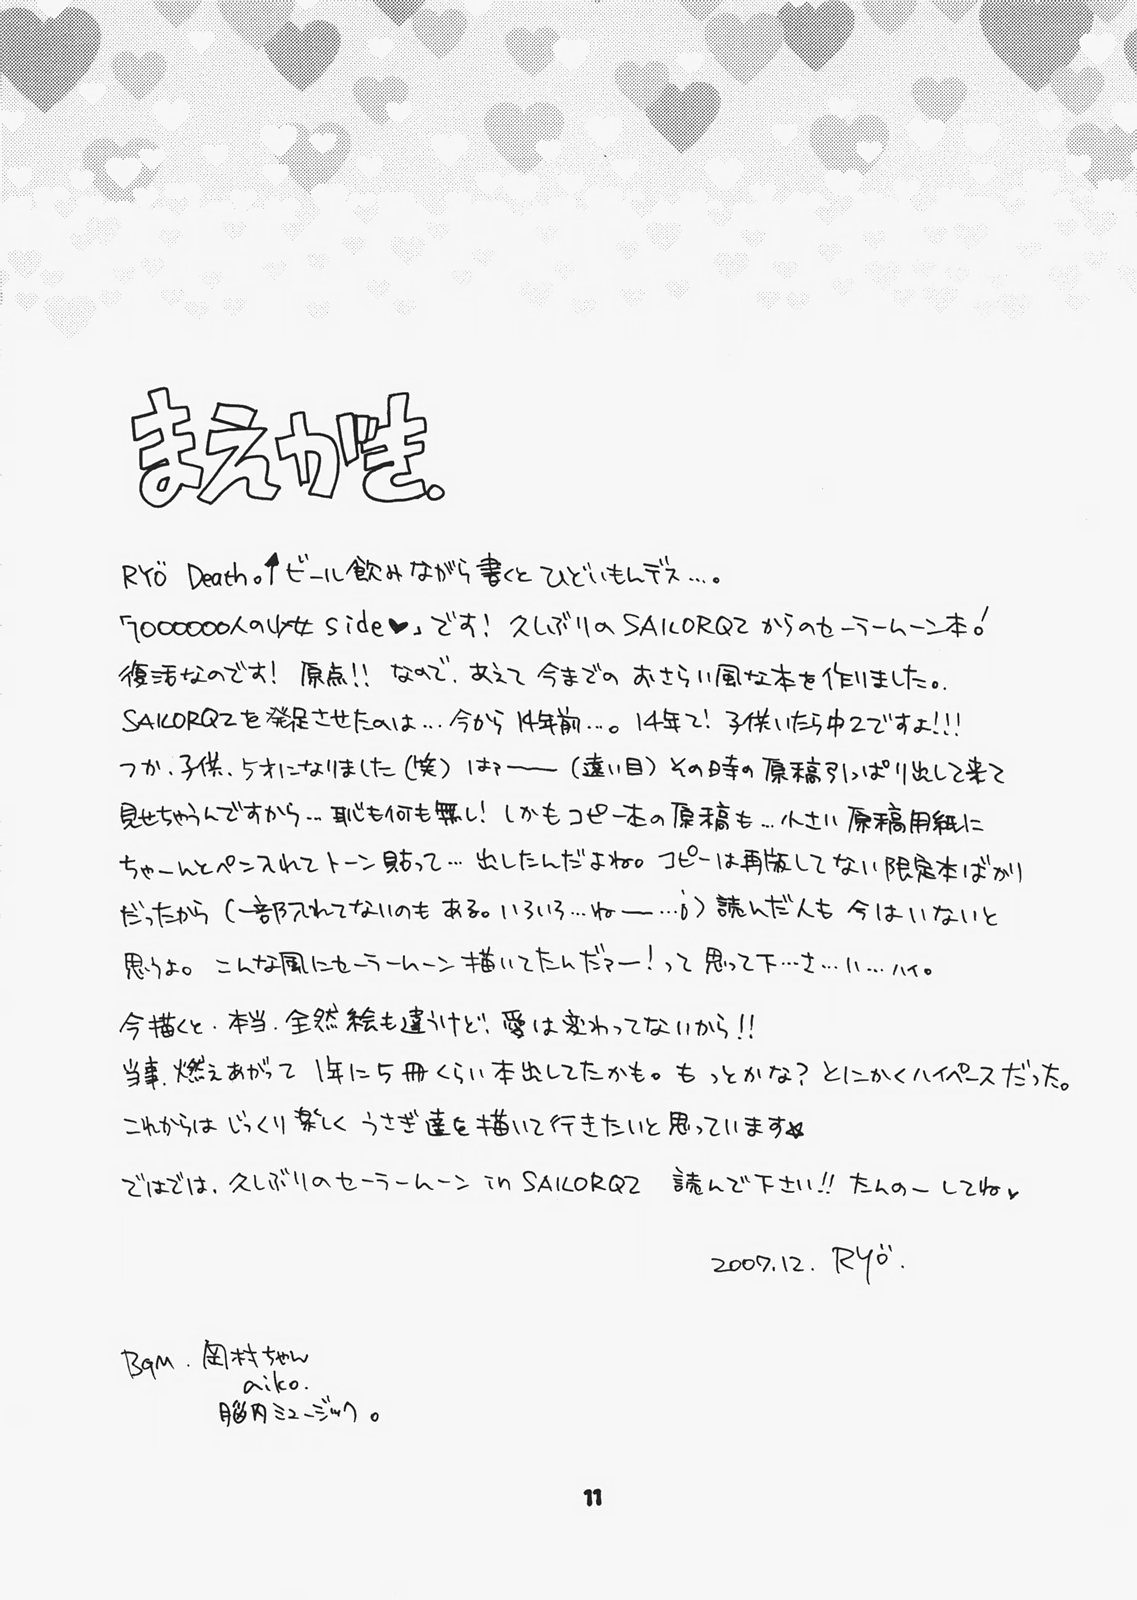 まえがき。
RYÖ Death。↑ビール飲みながら書くとひどいもんデス…。
「7000000人の少女side♥」です! 久しぶりのSAILORQ2からのセーラームーン本!
復活なのです! 原点!! なので、あえて今までのおさらい風な本を作りました。
SAILORQ2を発足させたのは…今から14年前…。14年て! 子供いたら中2ですよ!!!
つか、子供、5才になりました(笑) はァーー(遠い目)その時の原稿引っぱり出して来て
見せちゃうんですから…恥も何も無し! しかもコピー本の原稿も…小さい原稿用紙に
ちゃーんとペン入れてトーン貼って…出したんだよね。コピーは再販してない限定本ばかり
だったから(一部入れてないのもある。いろいろ…ねー…;)読んだ人も今はいないと
思うよ。こんな風にセーラームーン描いてたんだァー!って思って下…さ…い…ハイ。
今描くと、本当、全然絵も違うけど、愛は変わってないから!!
当事、燃えあがって1年に5冊くらい本出してたかも。もっとかな?とにかくハイペースだった。
これからはじっくり楽しくうさぎ達を描いて行きたいと思っています☆
ではでは、久しぶりのセーラームーン in SAILORQ2 読んで下さい!! たんのーしてね♥
2007.12. RYÖ.
BGM. 岡村ちゃん
aiko.
脳内ミュージック。
11